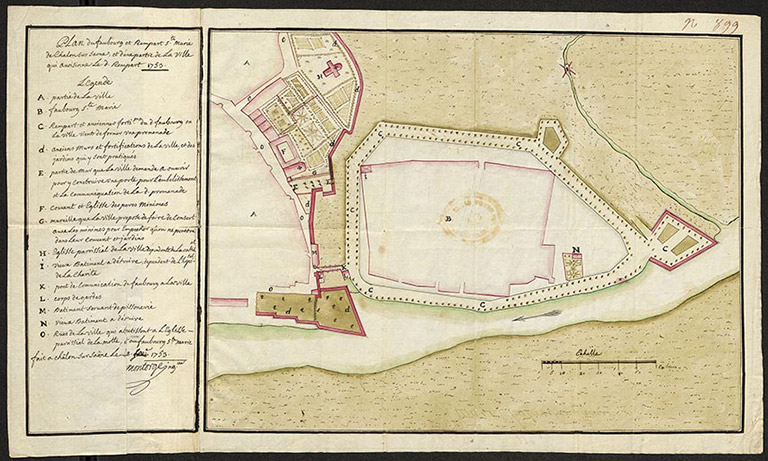 Plan du faubourg et Rempart S.te Marie
de Chalon sur Saone, et d'une partie de La Ville
qui avoisine Le d. Rempart 1753.
Légende
A. partie de La Ville
B. faubourg S.te Marie
C. Rempart et anciennes fortif.ons du d. faubourg ou
La Ville vient de former une promenade
d. anciens Murs et fortifications de La Ville, et des
jardins qui y sont pratiqués
E. partie de mur que La Ville demande a ouvrir
pour y construire une porte pour L'embelissement
et La Communication de La d. promenade
F. Couvent et Eglise des peres Minimes
G. muraille que La Ville propose de faire de Concert
avec Les minimes pour empecher qu'on ne
dans leur Couvent et jardins
H. Eglise parroissial de La Ville
I. vieux Batiment a détruire, dependent de L'
de La Charité
K. pont de Comunication du faubourg a La Ville
L. corps de gardes
M. Batiment servant de poissonnerie
N. vieux Batiment a détruire
O. Rües de La Ville qui abutissent a L'Eglise
parroissial de La motte, d'un faubourg S.te Marie
fait a châlon sur Saône Le 1753.
A
A
A
B
C
C
C
C
C
C
C
d
d
d
d
E
F
G
H
N
O
O
Echelle
899